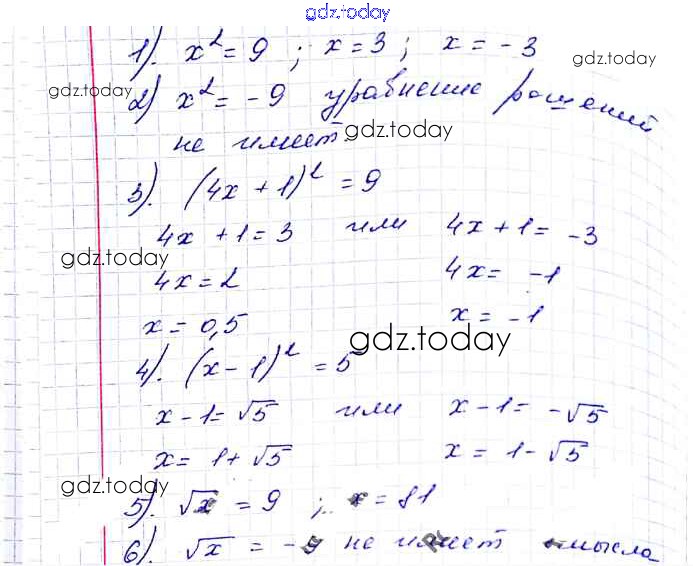 gdz.today
1). x² = 9 ; x = 3 ; x = -3
gdz.today
2) x² = -9 уравнение решений
не имеет. gdz.today
3). (4x + 1)² = 9
4x + 1 = 3 или 4x + 1 = -3
gdz.today gdz.today
4x = 2 4x = -1
x = 0,5 x = -1
gdz.today
4). (x - 1)² = 5
x - 1 = √5 или x - 1 = -√5
x = 1 + √5 x = 1 - √5
gdz.today gdz.today
5). √x = 9 ; x = 81
6). √x = -9 не имеет смысла